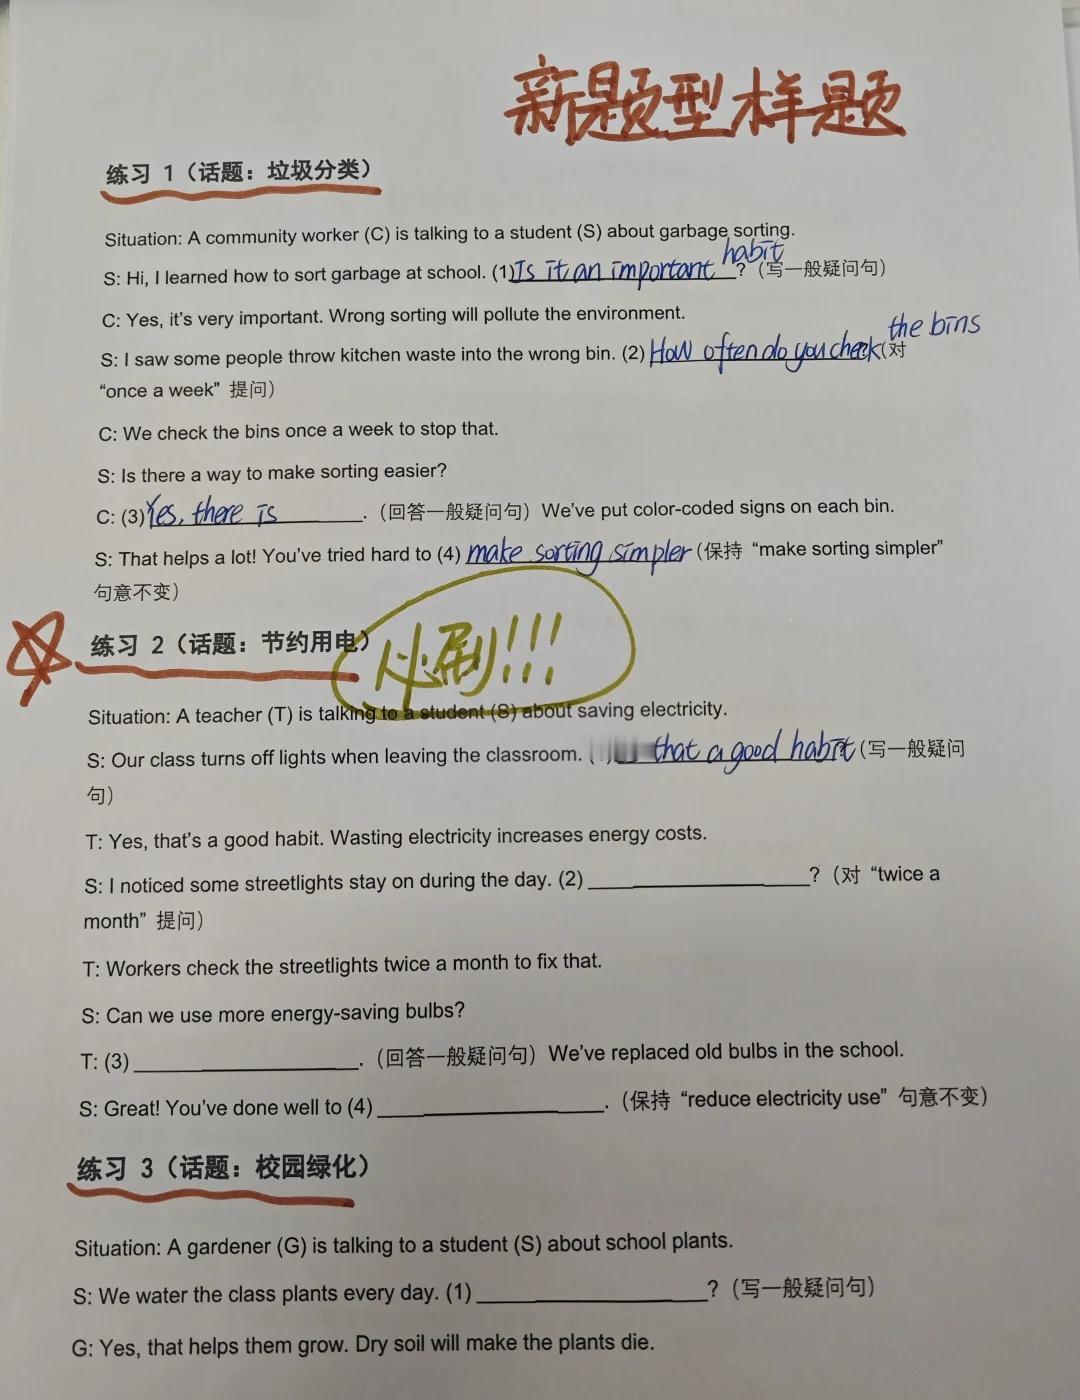 新题型样题
练习 1（话题：垃圾分类）
Situation: A community worker (C) is talking to a student (S) about garbage sorting.
S: Hi, I learned how to sort garbage at school. (1) Is it an important habit ?（写一般疑问句）
C: Yes, it's very important. Wrong sorting will pollute the environment.
S: I saw some people throw kitchen waste into the wrong bin. (2) How often do you check the bins (对
“once a week” 提问）
C: We check the bins once a week to stop that.
S: Is there a way to make sorting easier?
C: (3) Yes, there is .（回答一般疑问句）We've put color-coded signs on each bin.
S: That helps a lot! You've tried hard to (4) make sorting simpler (保持 “make sorting simpler”
句意不变）
练习 2（话题：节约用电）
必刷!!!
Situation: A teacher (T) is talking to a student (S) about saving electricity.
S: Our class turns off lights when leaving the classroom. that a good habit (写一般疑问
句）
T: Yes, that's a good habit. Wasting electricity increases energy costs.
S: I noticed some streetlights stay on during the day. (2) ?（对 “twice a
month” 提问）
T: Workers check the streetlights twice a month to fix that.
S: Can we use more energy-saving bulbs?
T: (3) .（回答一般疑问句）We've replaced old bulbs in the school.
S: Great! You've done well to (4) .（保持 “reduce electricity use” 句意不变）
练习 3（话题：校园绿化）
Situation: A gardener (G) is talking to a student (S) about school plants.
S: We water the class plants every day. (1) ?（写一般疑问句）
G: Yes, that helps them grow. Dry soil will make the plants die.